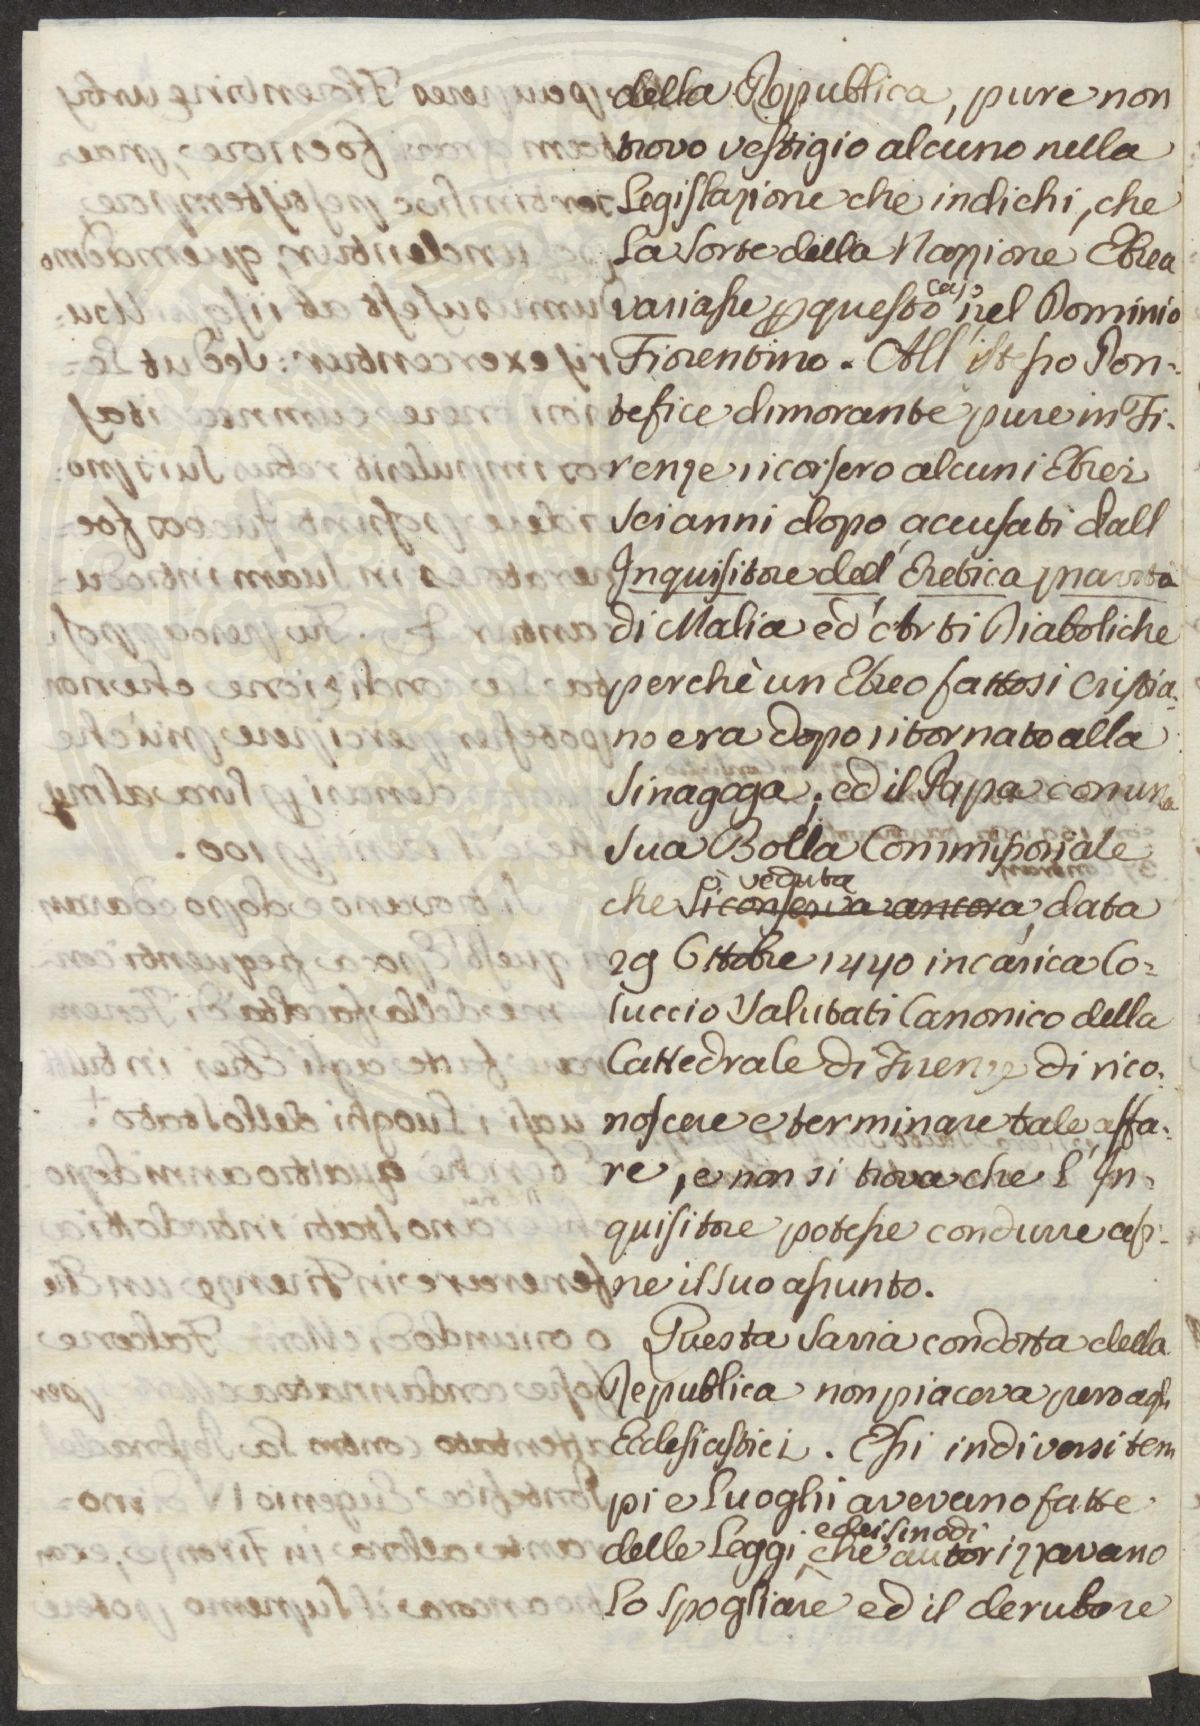 della Republica, pure non
trovo vestigio alcuno nella
Legislazione che indichi, che
la sorte della Nazione Ebrea
variasse p questo caso nel Dominio
Fiorentino. All'istesso Pon=
tefice dimorante pure in Fi=
renze ricorsero alcuni Ebrei
sei anni dopo accusati dall
Inquisitore dell'Eretica pravità
di Malia ed Arti Diaboliche
perchè un Ebreo fattosi Cristia=
no era dopo ritornato alla
Sinagoga; ed il Papa con una
sua Bolla Commissoriale
che si conserva ancora ò veduta, data
29 Ottobre 1440 incarica Co=
luccio Salutati Canonico della
Cattedrale di Firenze di rico=
noscere e terminare tale affa=
re, e non si trova che l'In=
quisitore potesse condurre a fi=
ne il suo assunto.
Questa savia condotta della
Republica non piaceva pero agli
Ecclesiastici. Essi in diversi tem
pi e Luoghi avevano fatte
delle Leggi e dei sinodi che autorizzavano
lo spogliare ed il derubare